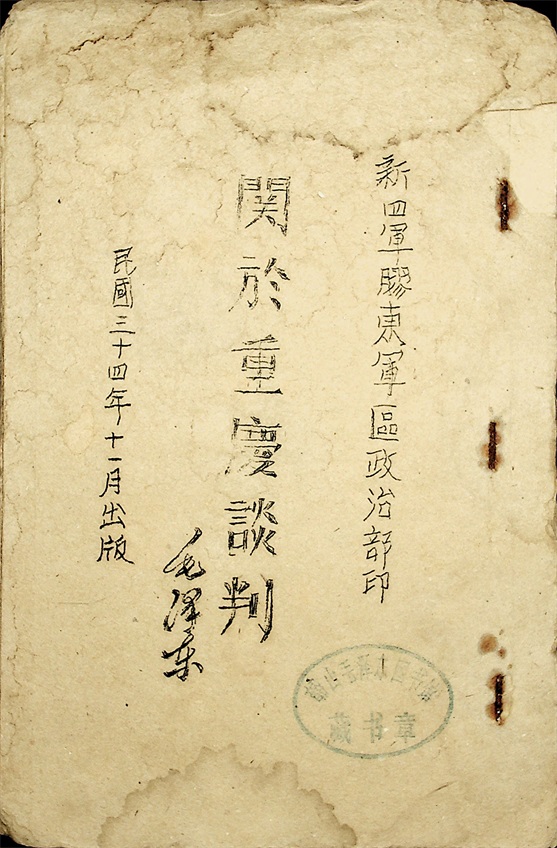 新四軍膠東軍區政治部印
関於重慶談判
毛泽东
民國三十四年十一月出版